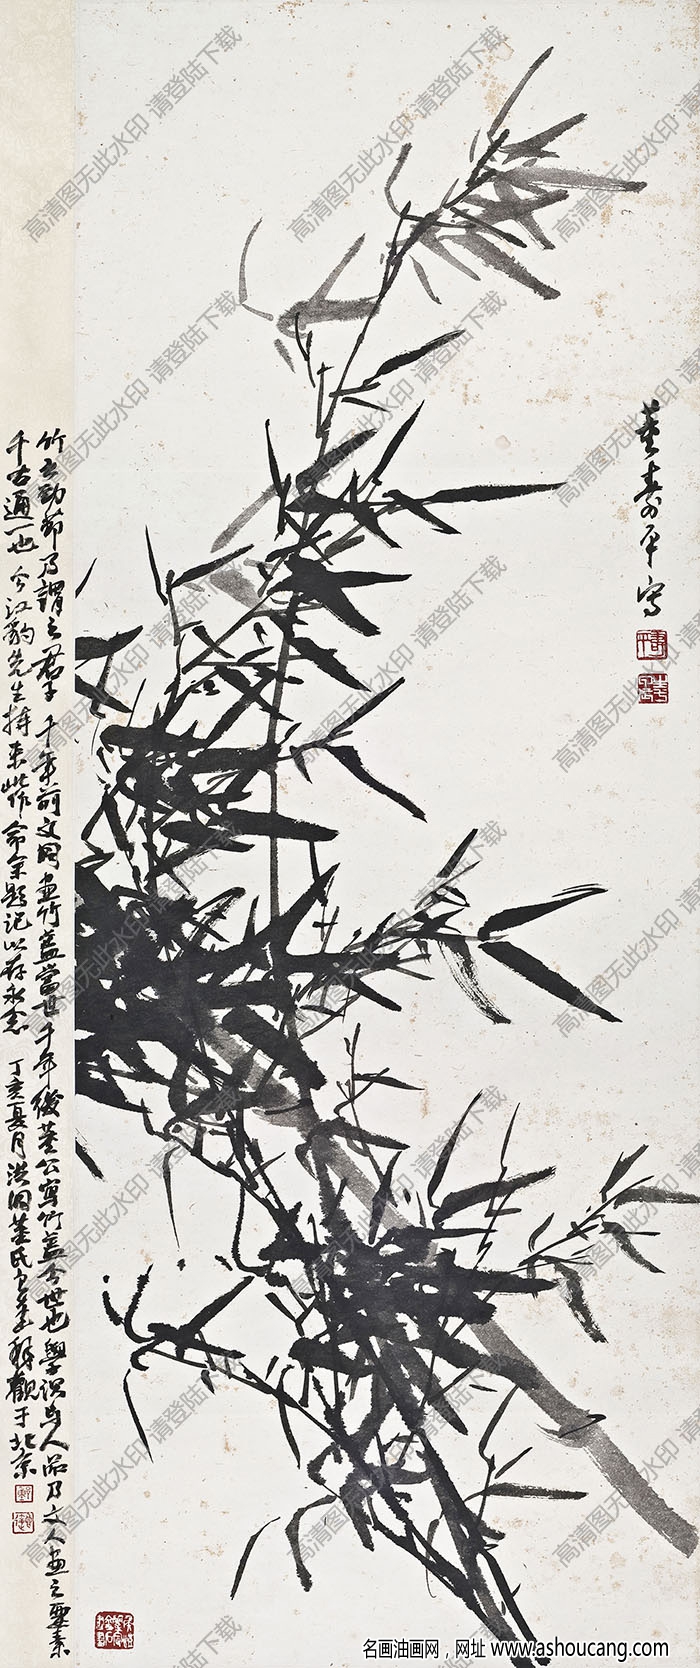 董寿平写
竹之劲节乃谓之君子千年前文同画竹盖当世千年后董公写竹盖今世也学识与人品乃文人画之要素
千古通一也今汉韵先生持来此作命余题记以存永念 丁亥夏月洪洞董氏
观于北京
高清图无此水印 请登陆下载
名画油画网，网址 www.ashoucang.com